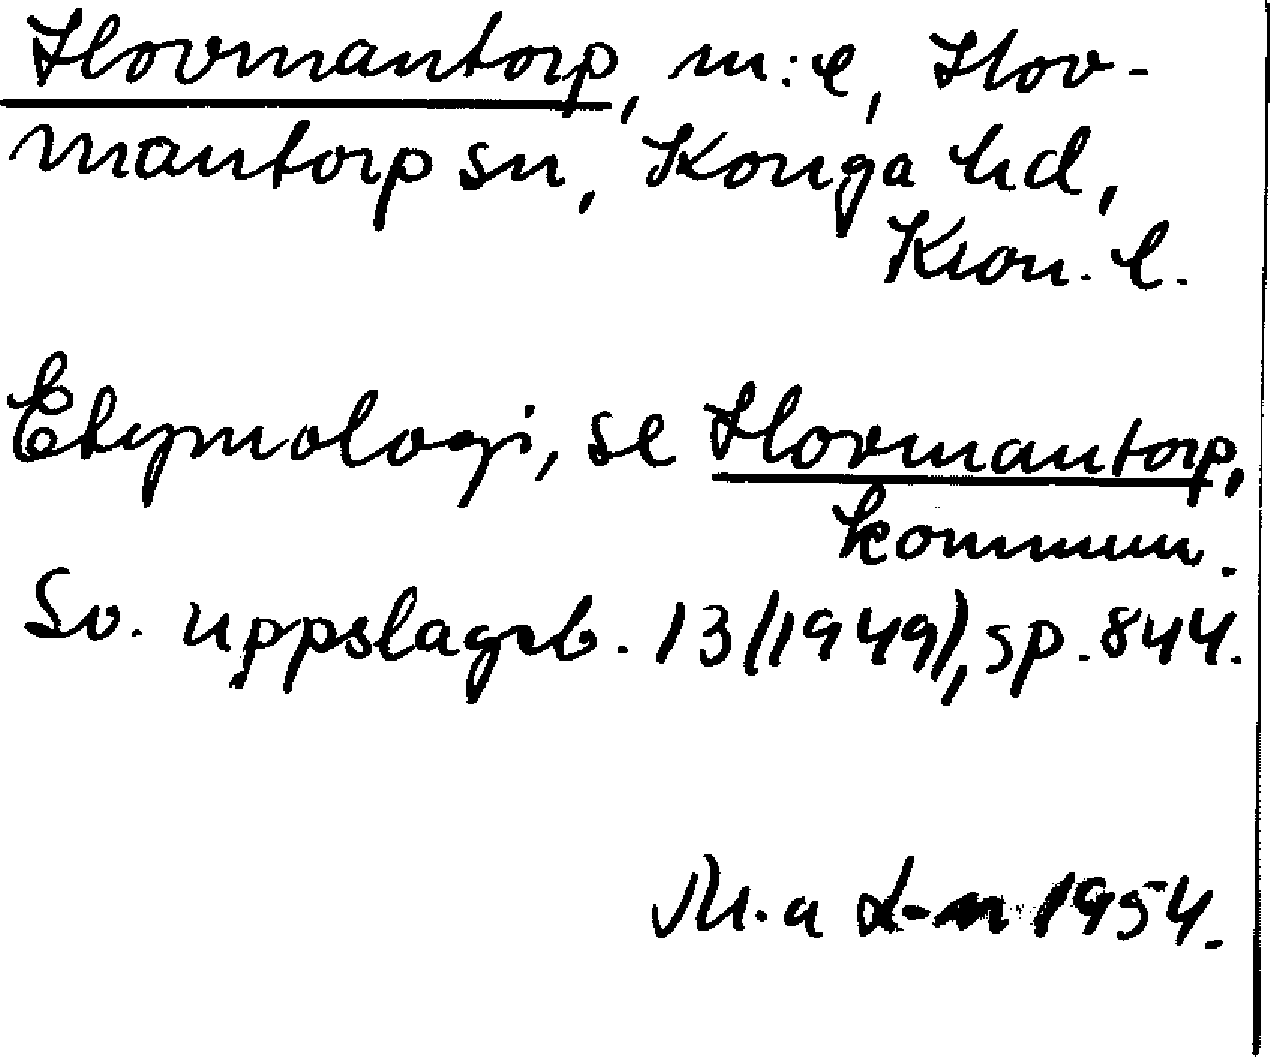 Hovmantorp, m:e, Hov-
mantorp sn, Konga hd,
Kron. l.
Etymologi, se Hovmantorp,
kommun.
Sv. uppslagsb. 13 (1949), sp. 844.
1954.